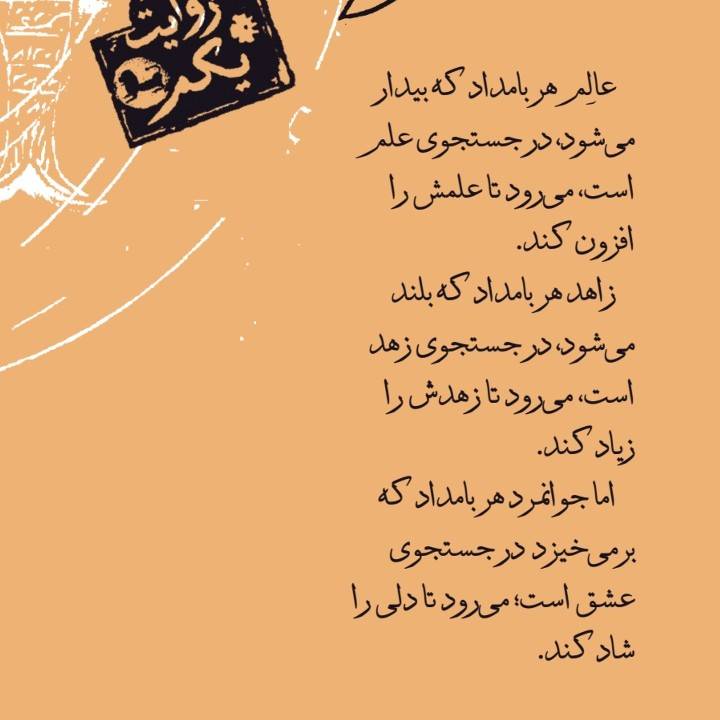 روایت
یکم
عالِم هر بامداد که بیدار
می‌شود، در جستجوی علم
است، می‌رود تا علمش را
افزون کند.
زاهد هر بامداد که بلند
می‌شود، در جستجوی زهد
است، می‌رود تا زهدش را
زیاد کند.
اما جوانمرد هر بامداد که
برمی‌خیزد در جستجوی
عشق است؛ می‌رود تا دلی را
شاد کند.